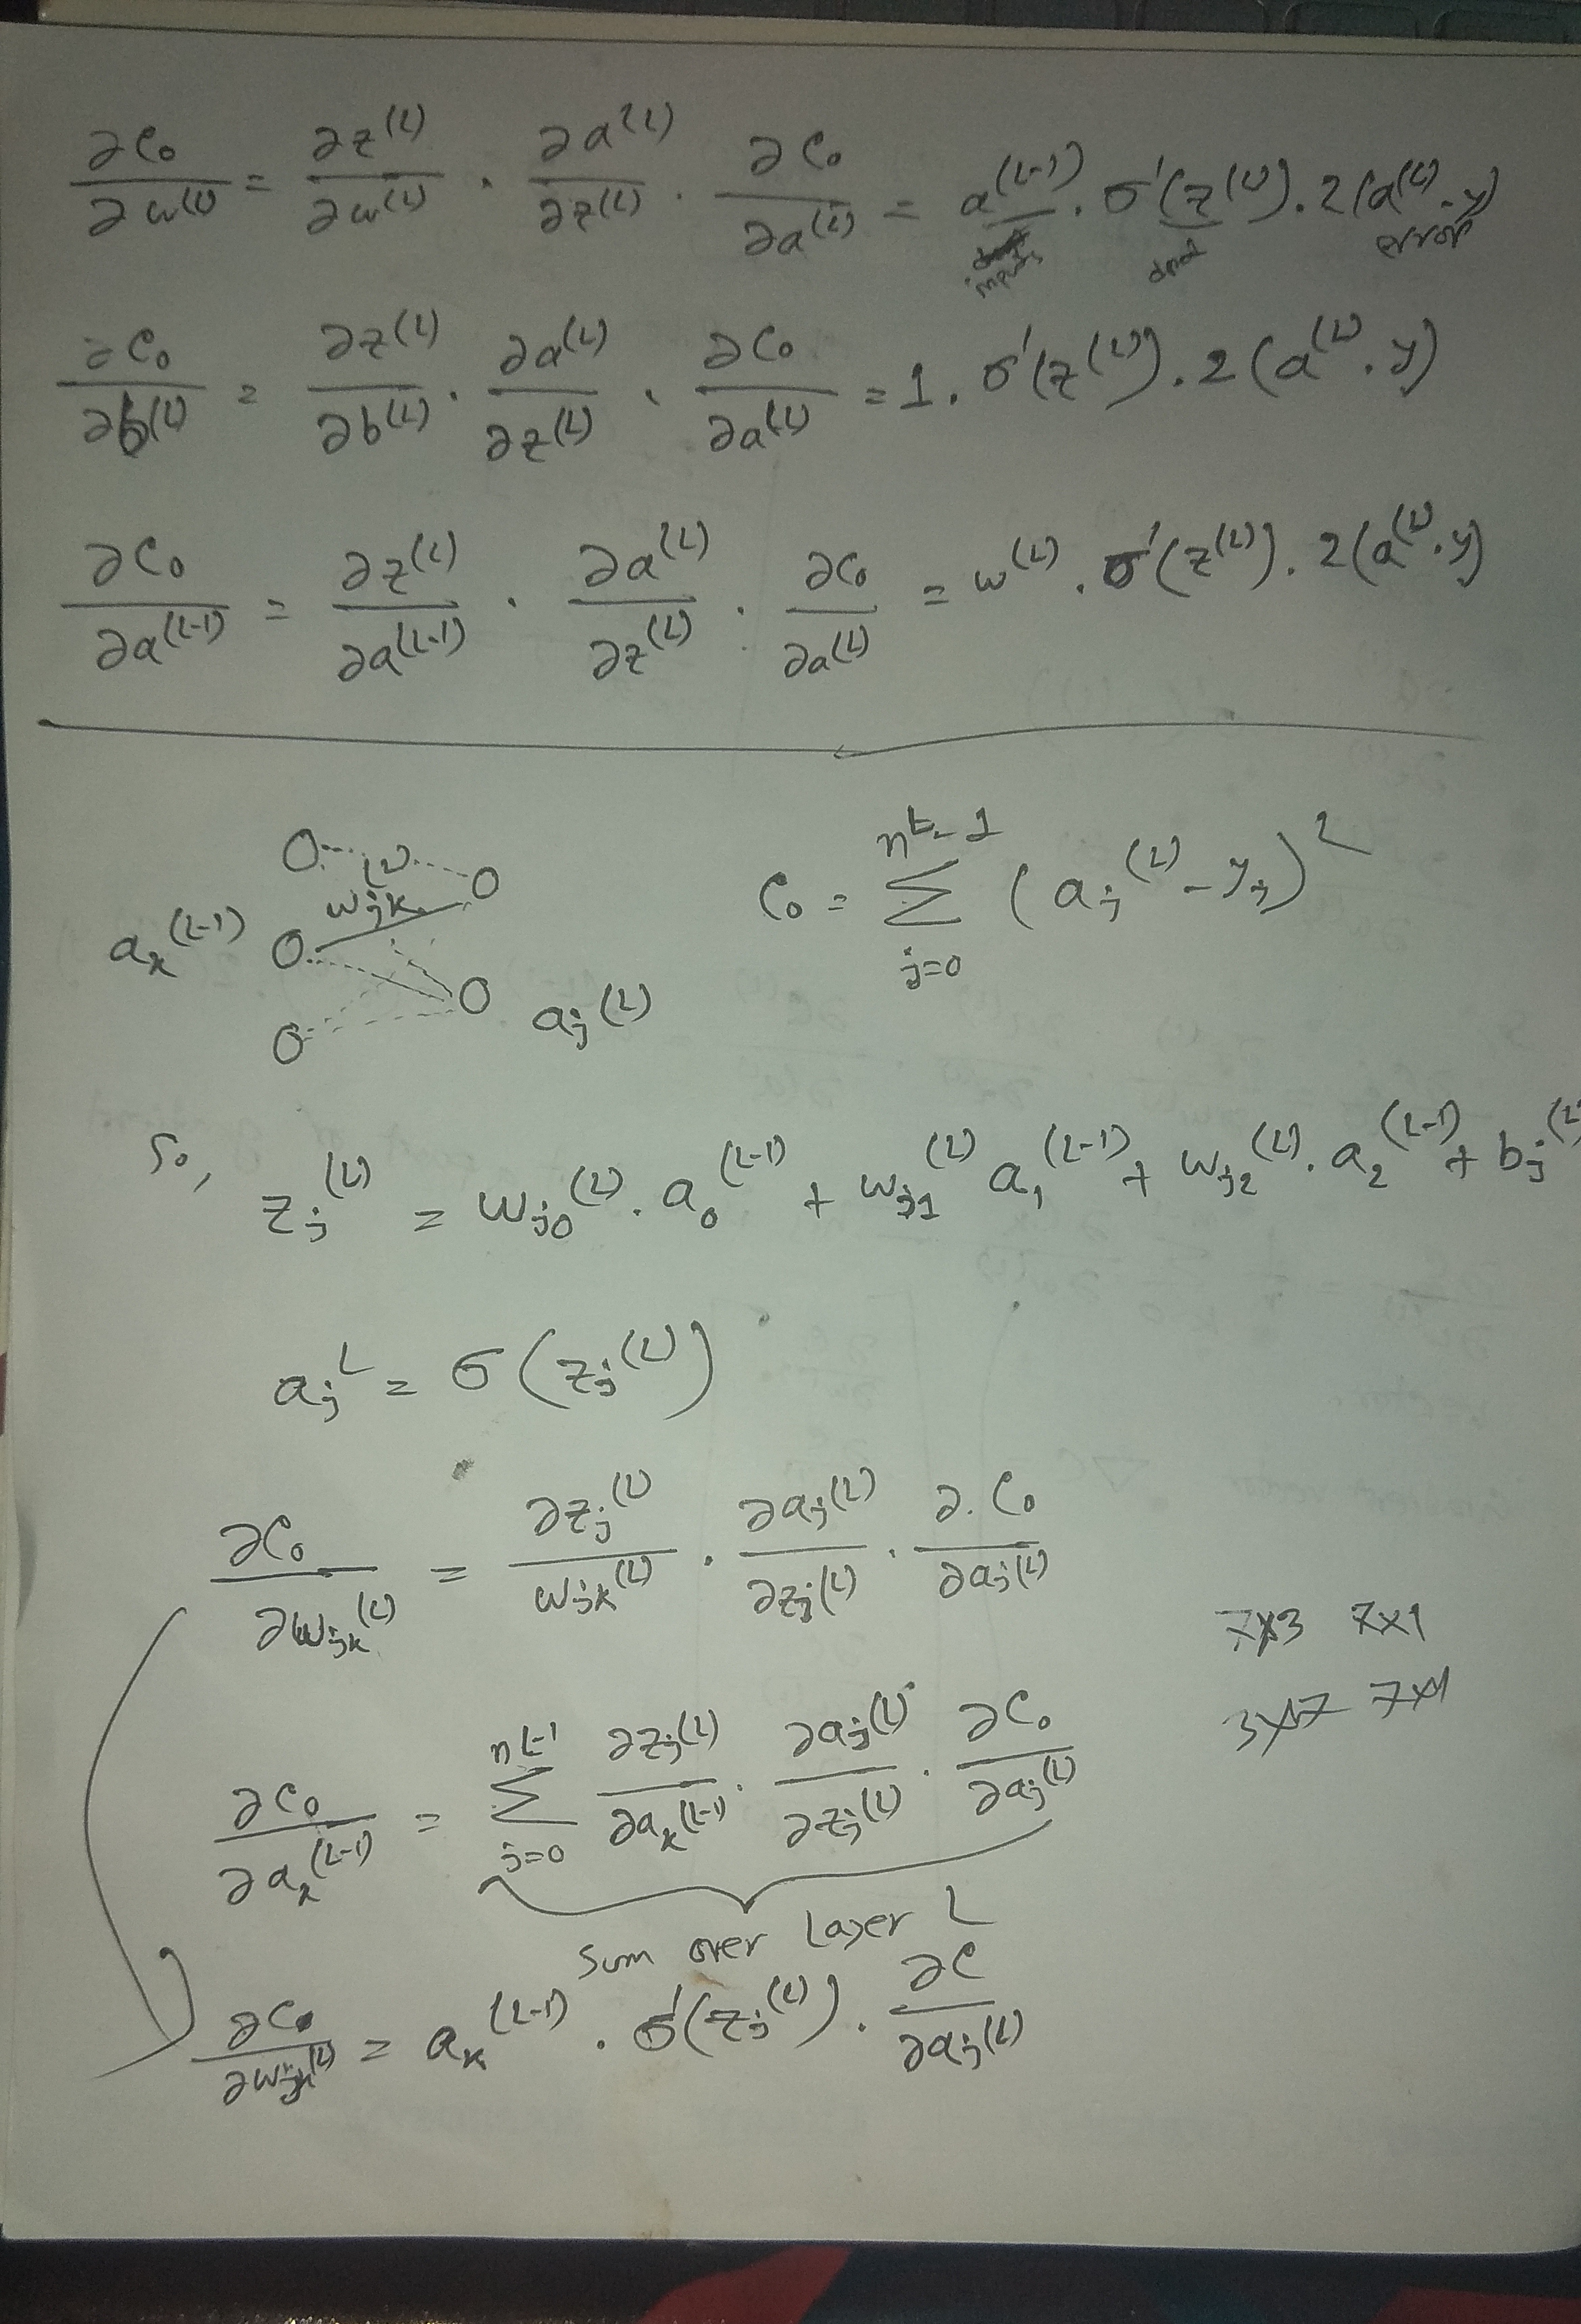 ∂C₀/∂w^(L) = ∂z^(L)/∂w^(L) · ∂a^(L)/∂z^(L) · ∂C₀/∂a^(L) = a^(L-1) · σ'(z^(L)) · 2(a^(L) - y)
inputs error
∂C₀/∂b^(L) = ∂z^(L)/∂b^(L) · ∂a^(L)/∂z^(L) · ∂C₀/∂a^(L) = 1 · σ'(z^(L)) · 2(a^(L) · y)
∂C₀/∂a^(L-1) = ∂z^(L)/∂a^(L-1) · ∂a^(L)/∂z^(L) · ∂C₀/∂a^(L) = w^(L) · σ'(z^(L)) · 2(a^(L) · y)
a_k^(L-1) w_jk^(L) a_j^(L)
C₀ = Σ_{j=0}^{n^L-1} (a_j^(L) - y_j)²
So, z_j^(L) = w_j0^(L) · a_0^(L-1) + w_j1^(L) a_1^(L-1) + w_j2^(L) · a_2^(L-1) + b_j^(L
a_j^L = σ(z_j^(L))
∂C₀/∂w_jk^(L) = ∂z_j^(L)/w_jk^(L) · ∂a_j^(L)/∂z_j^(L) · ∂.C₀/∂a_j^(L)
7x3 7x1
3x7 7x1
∂C₀/∂a_k^(L-1) = Σ_{j=0}^{nL-1} ∂z_j^(L)/∂a_k^(L-1) · ∂a_j^(L)/∂z_j^(L) · ∂C₀/∂a_j^(L)
Sum over Layer L
∂C₀/∂w_jk^(L) = a_k^(L-1) · σ'(z_j^(L)) · ∂C/∂a_j^(L)